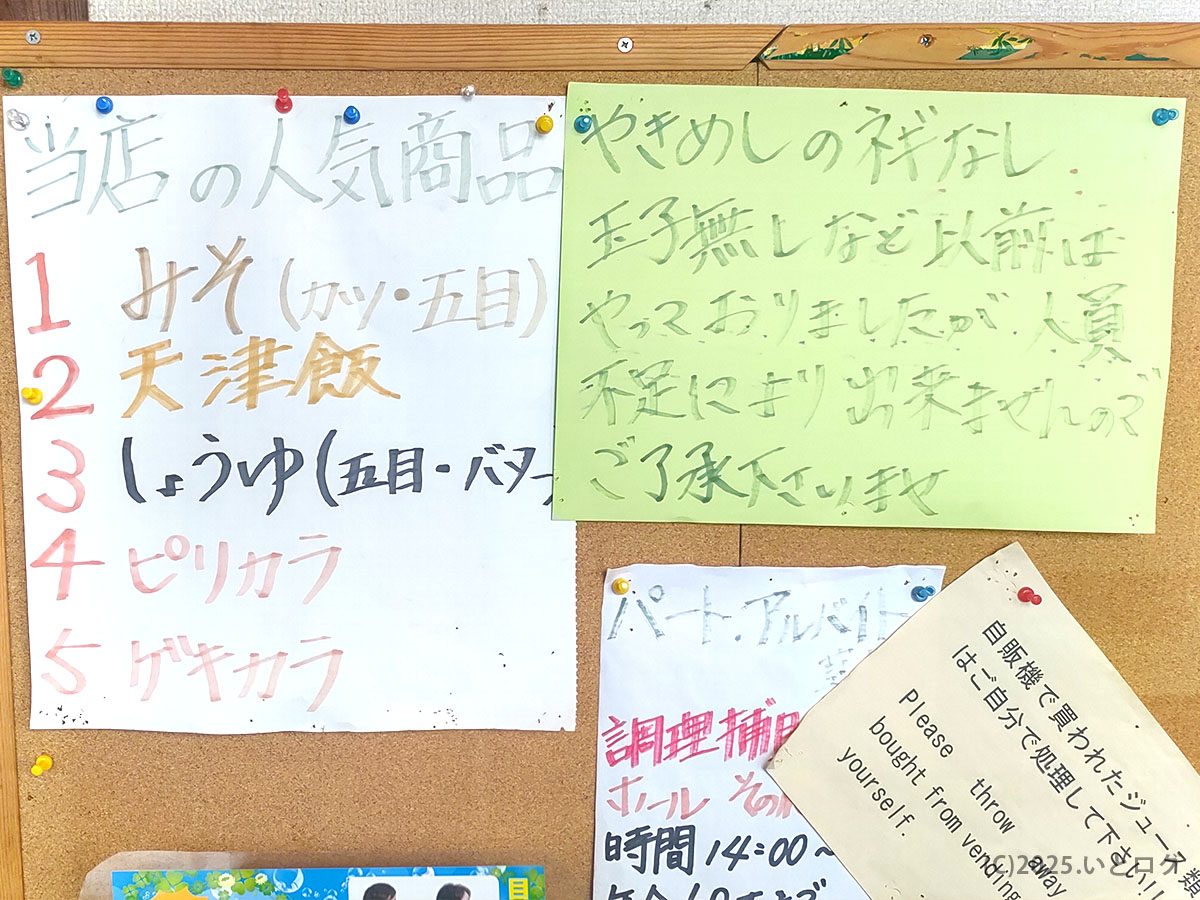 当店の人気商品
1 みそ(カツ・五目)
2 天津飯
3 しょうゆ(五目・バター)
4 ピリカラ
5 ゲキカラ
やきめしのネギなし
玉子無しなど以前は
やっておりましたが人員
不足により出来ませんので
ご了承下さいませ
パート.アルバイト
調理補
ホール その
時間 14:00~
自販機で買われたジュース類
はご自分で処理して下さい!!
Please throw away
bought from vending
yourself.
(C)2025.いとログ